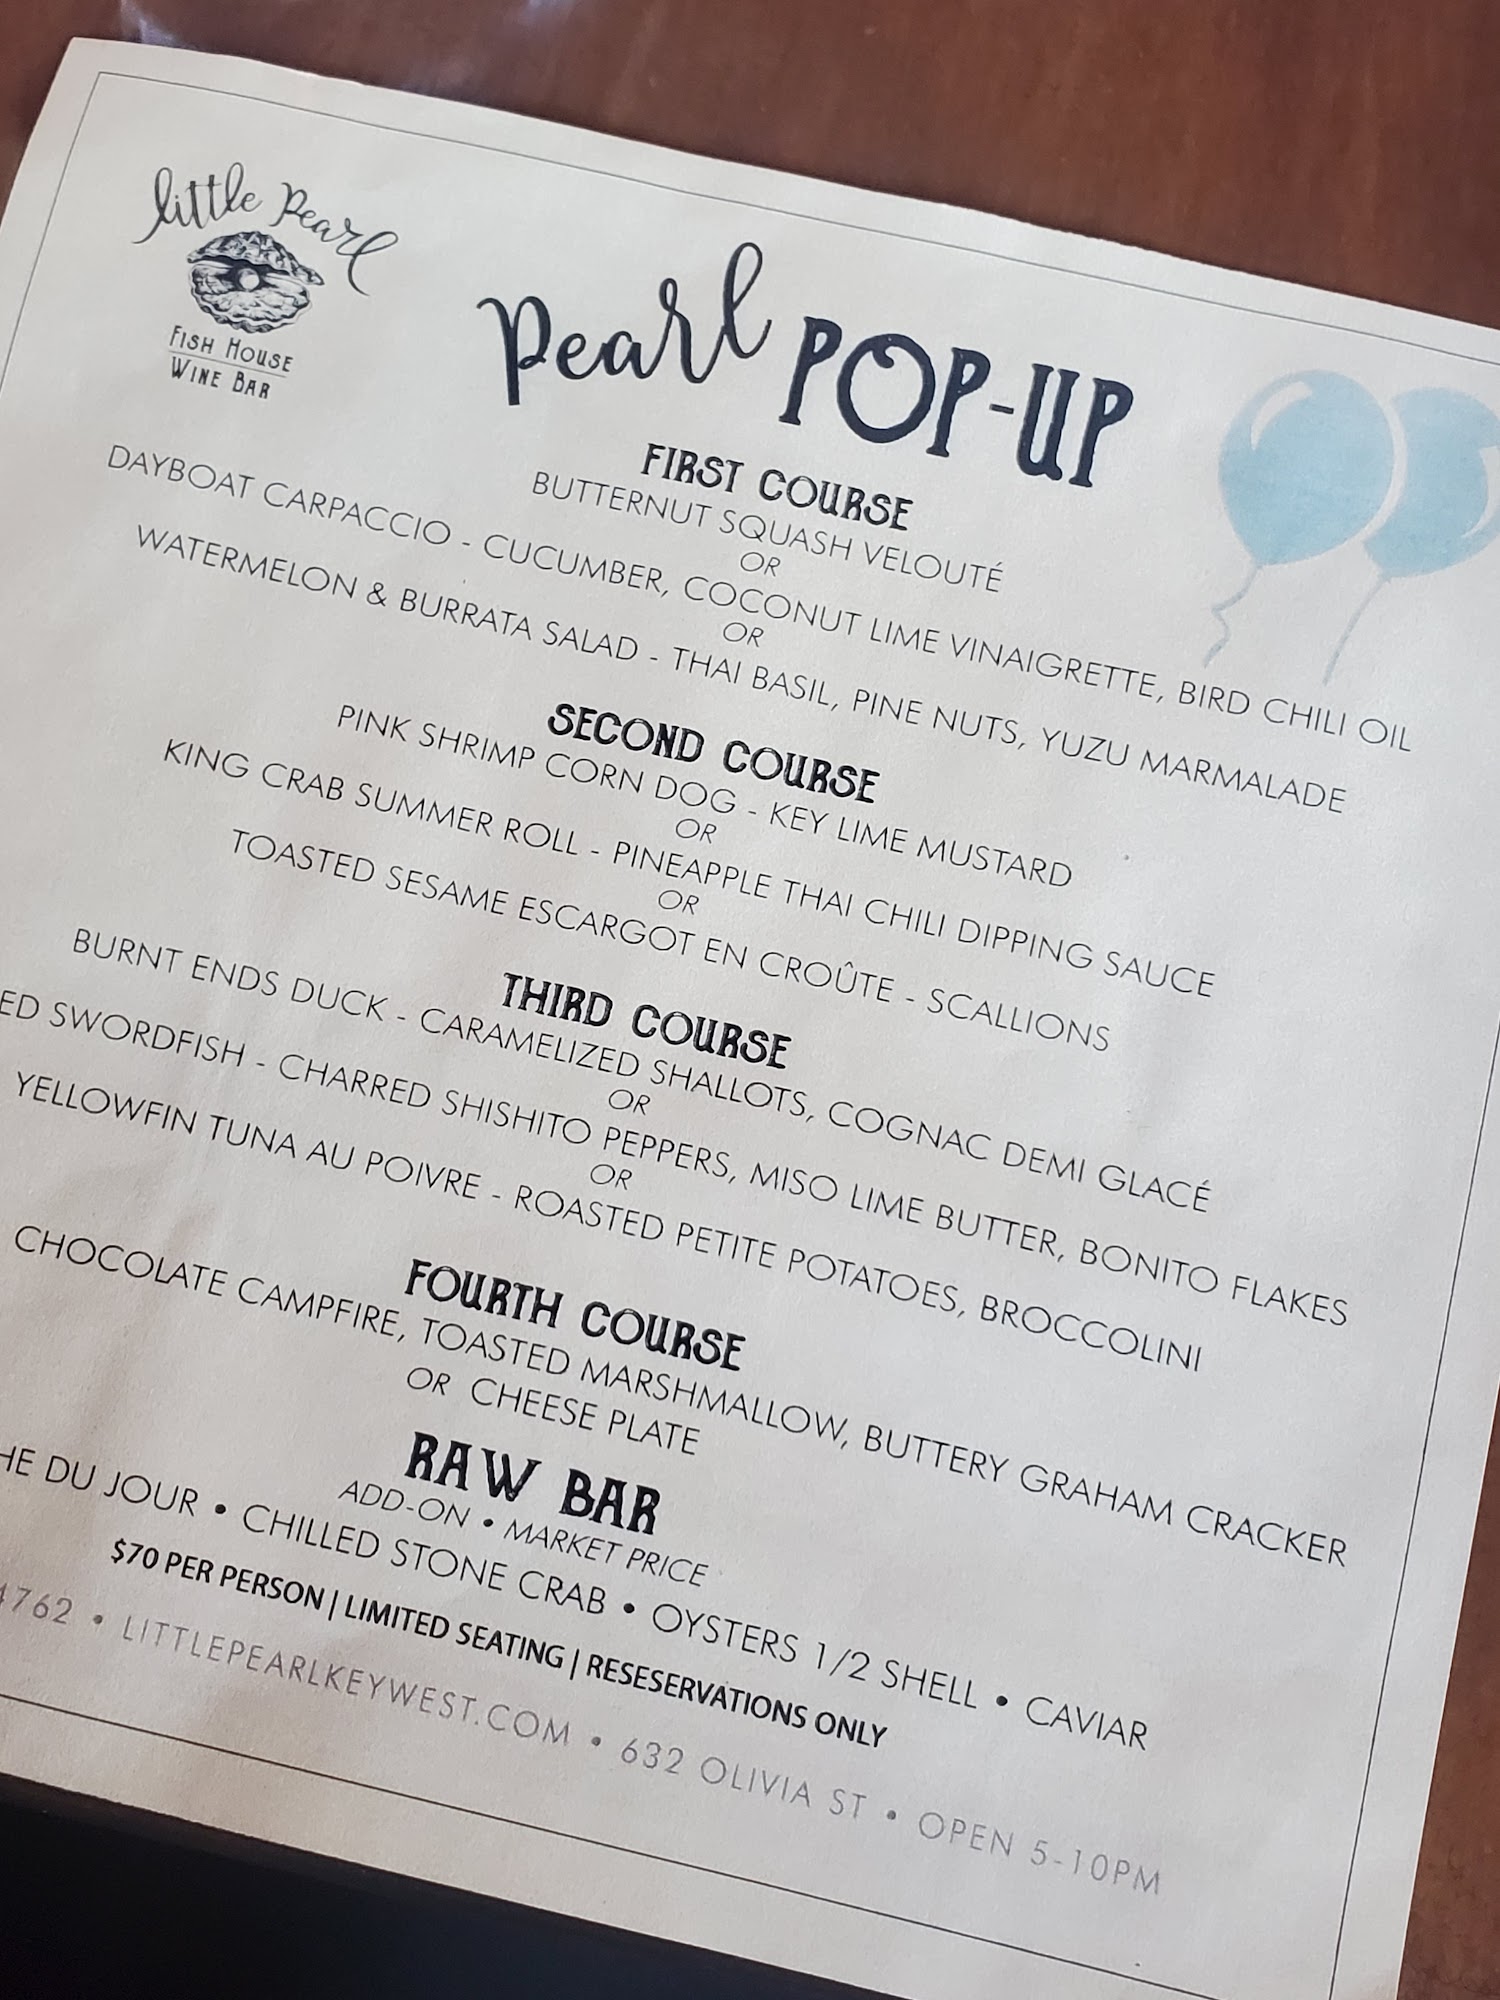 little Pearl
FISH HOUSE
WINE BAR
Pearl POP-UP
FIRST COURSE
BUTTERNUT SQUASH VELOUTÉ
OR
DAYBOAT CARPACCIO - CUCUMBER, COCONUT LIME VINAIGRETTE, BIRD CHILI OIL
OR
WATERMELON & BURRATA SALAD - THAI BASIL, PINE NUTS, YUZU MARMALADE
SECOND COURSE
PINK SHRIMP CORN DOG - KEY LIME MUSTARD
OR
KING CRAB SUMMER ROLL - PINEAPPLE THAI CHILI DIPPING SAUCE
OR
TOASTED SESAME ESCARGOT EN CROÛTE - SCALLIONS
THIRD COURSE
BURNT ENDS DUCK - CARAMELIZED SHALLOTS, COGNAC DEMI GLACÉ
OR
SWORDFISH - CHARRED SHISHITO PEPPERS, MISO LIME BUTTER, BONITO FLAKES
OR
YELLOWFIN TUNA AU POIVRE - ROASTED PETITE POTATOES, BROCCOLINI
FOURTH COURSE
CHOCOLATE CAMPFIRE, TOASTED MARSHMALLOW, BUTTERY GRAHAM CRACKER
OR CHEESE PLATE
RAW BAR
ADD-ON • MARKET PRICE
DU JOUR • CHILLED STONE CRAB • OYSTERS 1/2 SHELL • CAVIAR
$70 PER PERSON | LIMITED SEATING | RESESERVATIONS ONLY
4762 • LITTLEPEARLKEYWEST.COM • 632 OLIVIA ST • OPEN 5-10PM